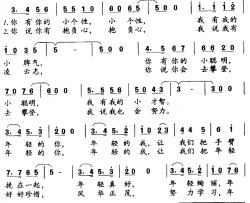 3. 4 5 6 | 5 5 1 0 | 6 0 6 5 | 5 5 0 | 3. 4 5 6
1.你 有 你 的 小 个 性, 小 个 性, 我 有 我 的
2.你 说 你 有 抱 负 心, 抱 负 心, 我 说 我 有
1 0 3 5 | 5 — | 5 0 | 4. 5 6 7 | 6 6 2 0
小 脾 气, 你 有 你 的 小 聪 明,
凌 云 志, 你 说 你 会 去 攀 登,
7 0 7 6 | 6 0 0 | 4. 5 6 7 | 5 4 5 3 | 3 — | 3 0 0
小 聪 明, 我 有 我 的 小 才 智。
去 攀 登, 我 说 我 也 会 努 力。
3 4 5. 3 | 2 0 0 | 3 4 5. 3 | 1 0 0
年 轻 的 你, 年 轻 的 我, 让 我 们 把 手 臂
年 轻 的 你, 年 轻 的 我, 让 我 们 把 年 轻
7. 7 6 5 | 5 — | 5 0 | 3 4 5. 3 | 2 0 0 | 3 4 5. 2 | 1 0 7 6
挽 在 一 起, 年 轻 真 好, 年 轻 绚 丽, 年
好 好 珍 惜, 风 华 正 茂, 努 力 学 习, 年